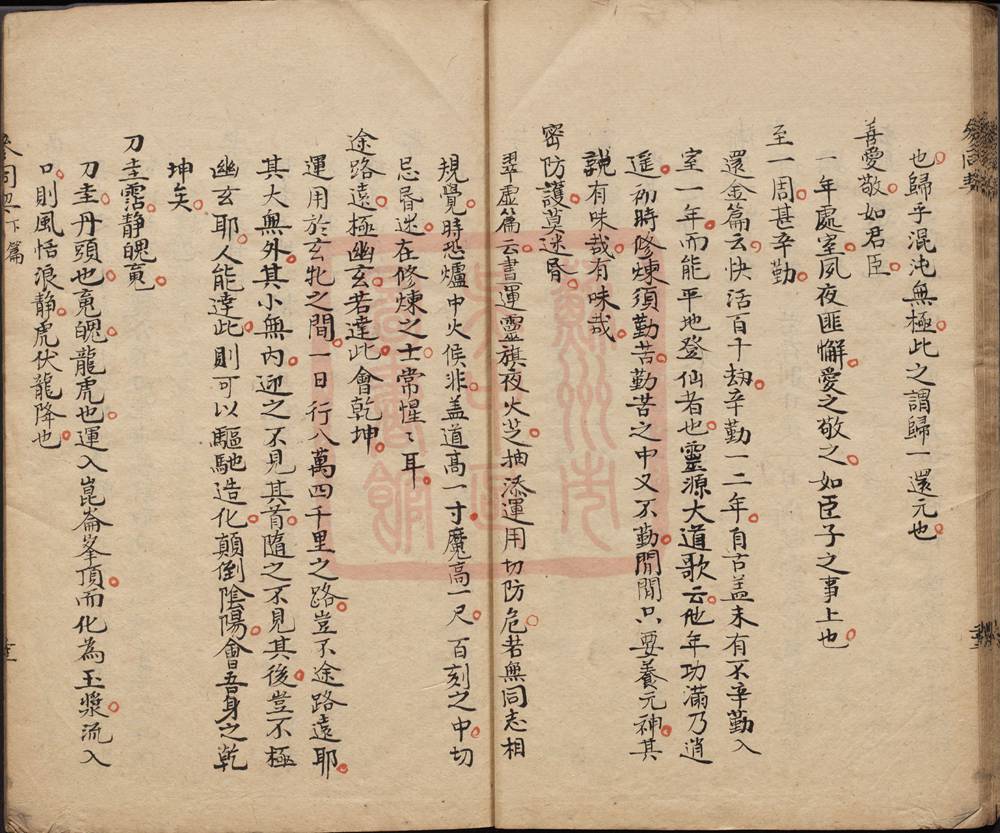 也歸乎混沌無極此之謂歸一還元也
善愛敬如君臣
一年處室夙夜匪懈愛之敬之如臣子之事上也
至一周甚辛勤
還金篇云快活百千劫辛勤一二年自古盖未有不辛勤入
室一年而能平地登仙者也靈源大道歌云他年功滿乃逍
遥初時修煉須勤苦勤苦之中又不勤閒閒只要養元神其
說有味哉有味哉
密防護莫迷昬
翠虚篇云晝運靈旗夜火芝抽添運用切防危若無同志相
規覺時恐爐中火候非盖道高一寸魔高一尺百刻之中切
忌昬迷在修煉之士常惺〻耳
途路遠極幽玄若達此會乾坤
運用於玄牝之間一日行八萬四千里之路豈不途路遠耶
其大無外其小無内迎之不見其首隨之不見其後豈不極
幽玄耶人能達此則可以驅馳造化顛倒陰陽會吾身之乾
坤矣
刀圭霑静魄䰟
刀圭丹頭也䰟魄龍虎也運入崑崙峯頂而化為玉漿流入
口則風恬浪静虎伏龍降也
叅同契下篇